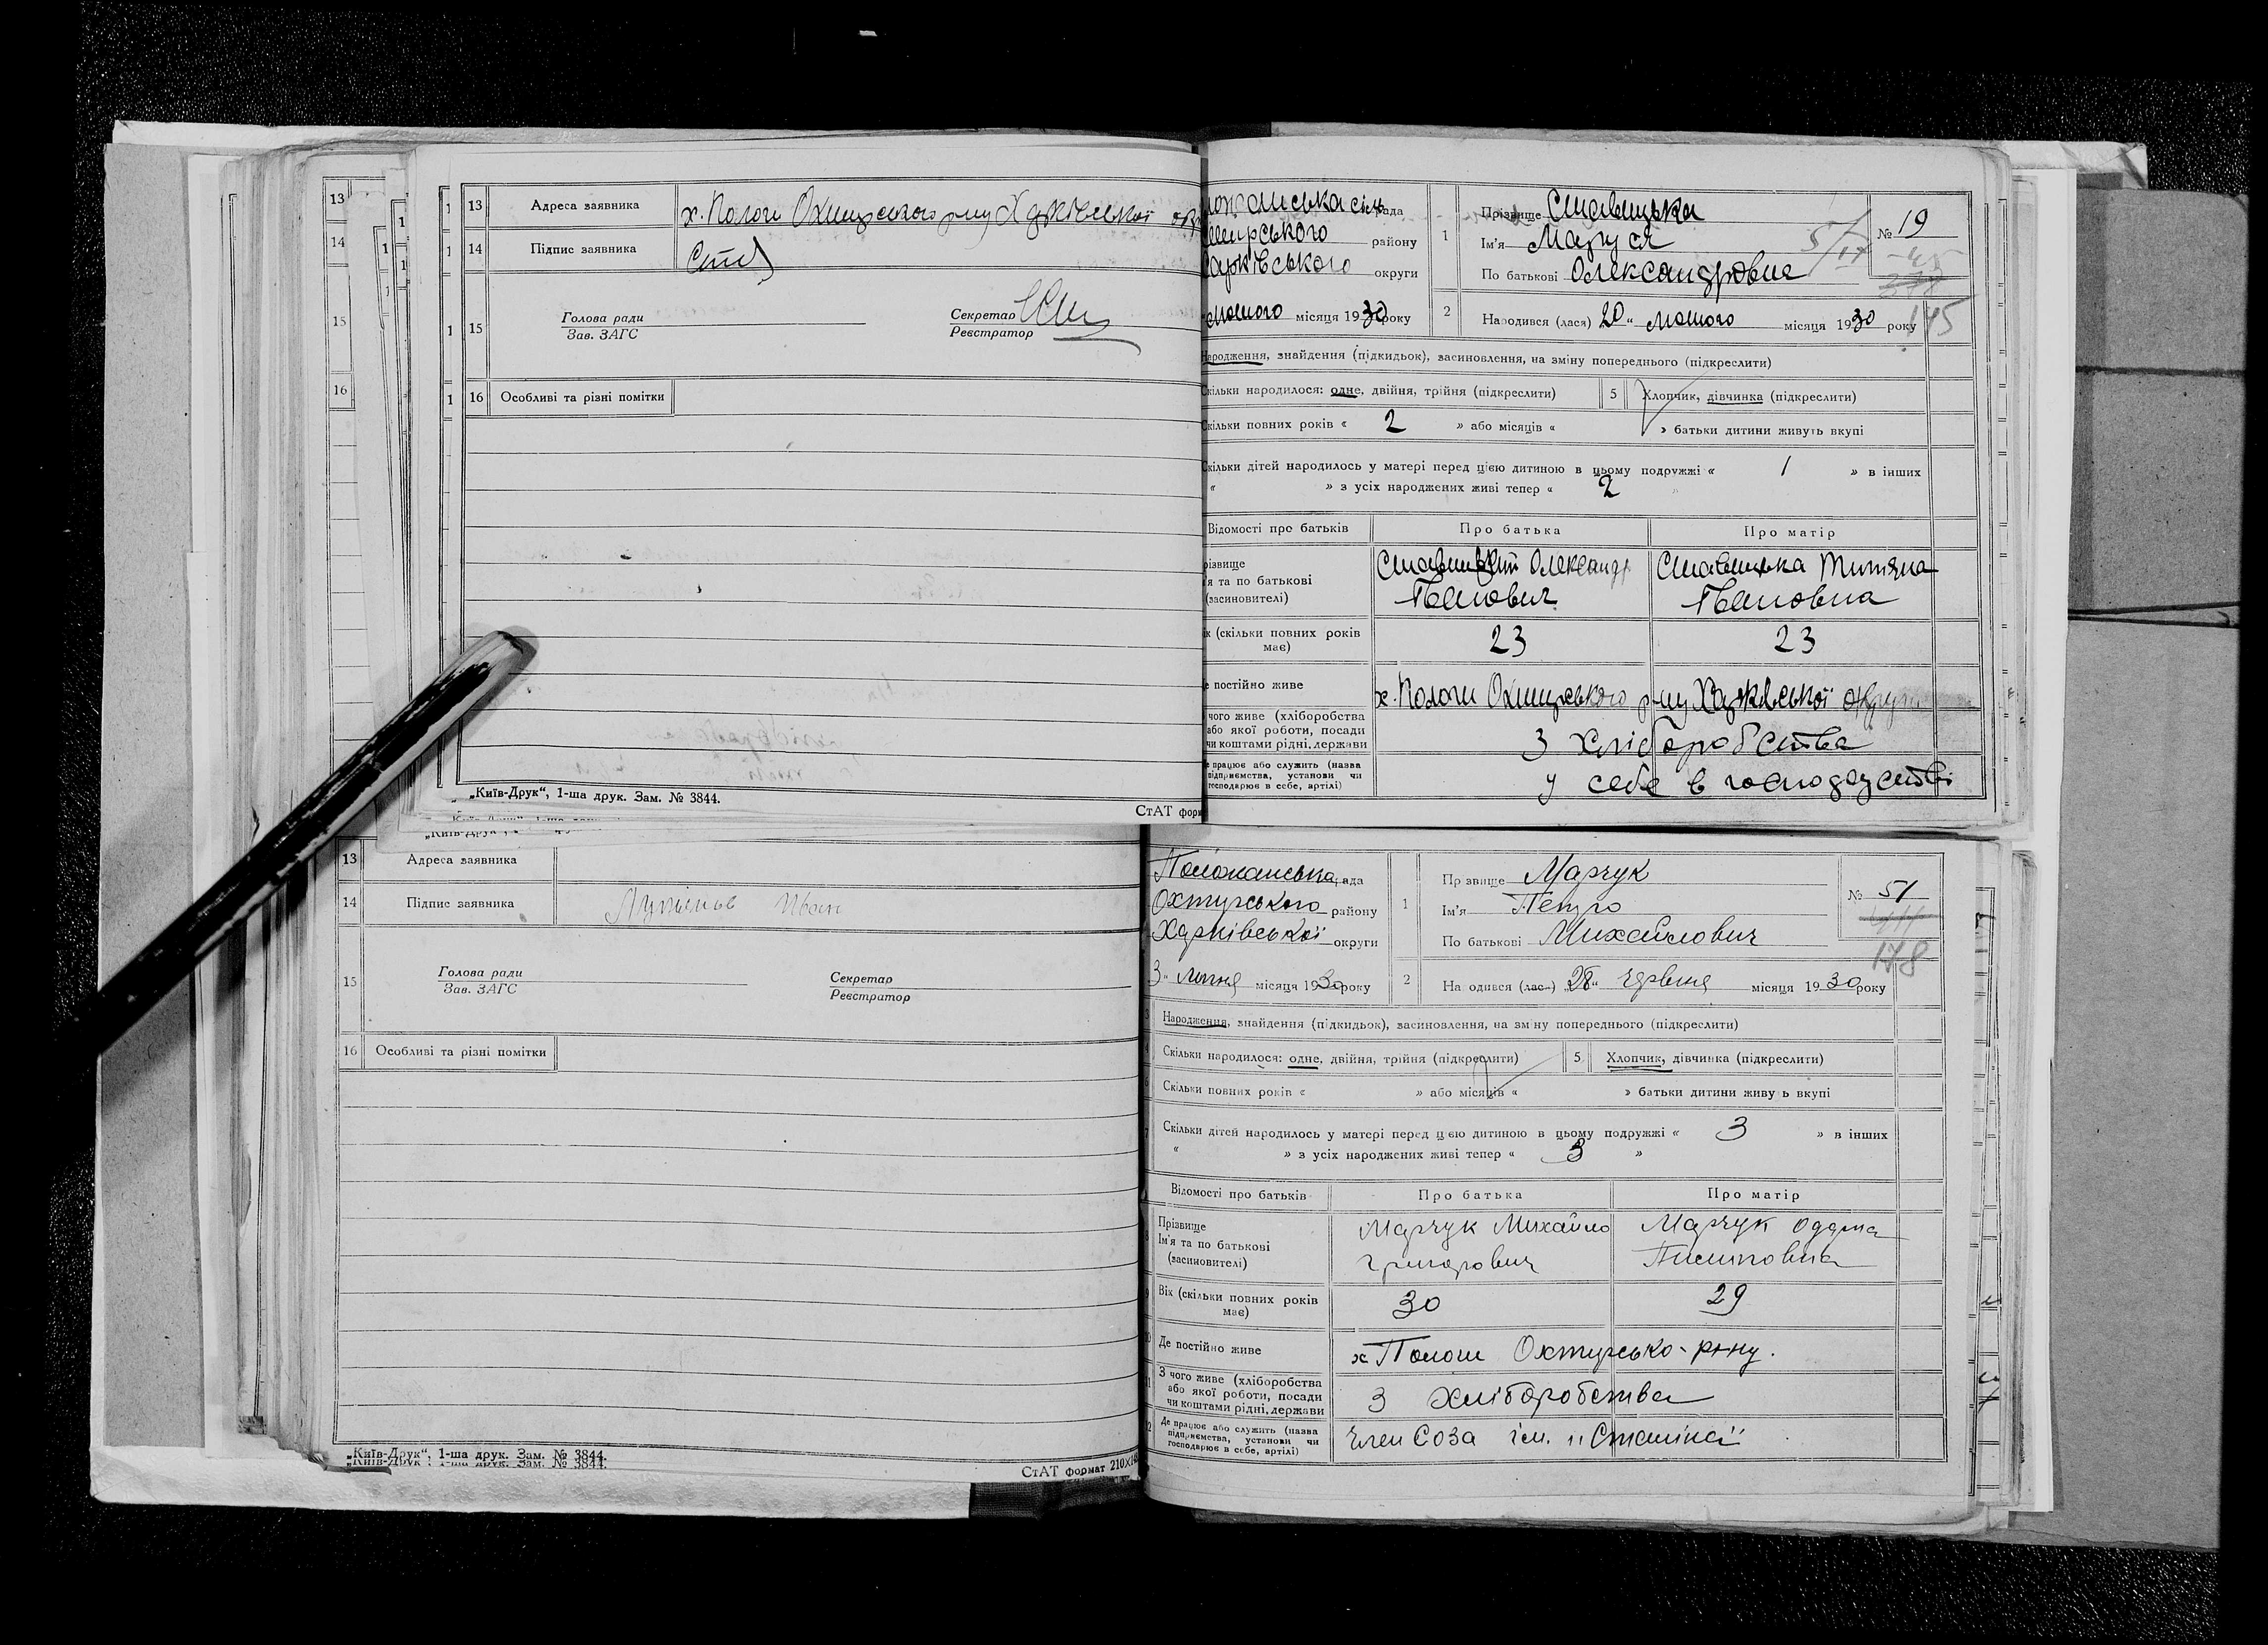 13 Адреса заявника х. Пологи Охтирського р-ну Харківської окр
14 Підпис заявника Став
15 Голова ради Секретар
Зав. ЗАГС Реєстратор
16 Особливі та різні помітки
„Київ-Друк“, 1-ша друк. Зам. № 3844.
СтАТ форм
ложанська сільрада
тирського району
арківського округи
лютого місяця 1930 року
1 Прізвище Ставицька
Ім'я Маруся
По батькові Олександровна
№ 19
145
2 Народився (лася) 20 „ лютого місяця 1930 року
Народження, знайдення (підкидьок), засиновлення, на зміну попереднього (підкреслити)
Скільки народилося: одне, двійня, трійня (підкреслити) 5 Хлопчик, дівчинка (підкреслити)
Скільки повних років « 2 » або місяців « » батьки дитини живуть вкупі
Скільки дітей народилось у матері перед цією дитиною в цьому подружжі « 1 » в інших
« » з усіх народжених живі тепер « 2 »
Відомості про батьків Про батька Про матір
різвище
я та по батькові
(засиновителі)
Ставицький Олександр
Іванович
Ставицька Титяна
Івановна
ік (скільки повних років
має)
23 23
е постійно живе х. Пологи Охтирського р-ну Харківської округи
чого живе (хліборобства
або якої роботи, посади
чи коштами рідні, держави
З хліборобства
е працює або служить (назва
підприємства, установи чи
господарює в себе, артілі)
у себе в господарстві
13 Адреса заявника
14 Підпис заявника Іван
15 Голова ради Секретар
Зав. ЗАГС Реєстратор
16 Особливі та різні помітки
„Київ-Друк“, 1-ша друк. Зам. № 3844.
СтАТ формат 210×
Положанська рада
Охтирського району
Харківської округи
3 „ липня місяця 1930 року
1 Прізвище Марчук
Ім'я Петро
По батькові Михайлович
№ 51
178
2 Народився (лась) „28“ червня місяця 1930 року
Народження, знайдення (підкидьок), засиновлення, на зміну попереднього (підкреслити)
Скільки народилося: одне, двійня, трійня (підкреслити) 5 Хлопчик, дівчинка (підкреслити)
Скільки повних років « » або місяців « » батьки дитини живуть вкупі
Скільки дітей народилось у матері перед цією дитиною в цьому подружжі « 3 » в інших
« » з усіх народжених живі тепер « 3 »
Відомості про батьків Про батька Про матір
Прізвище
Ім'я та по батькові
(засиновителі)
Марчук Михайло
Григорович
Марчук Одарка
Вік (скільки повних років
має)
30 29
Де постійно живе х Пологи Охтирсько-р-ну.
З чого живе (хліборобства
або якої роботи, посади
чи коштами рідні, держави
З хліборобства
Де працює або служить (назва
підприємства, установи чи
господарює в себе, артілі)
Член Соза ім. „Сталіна“